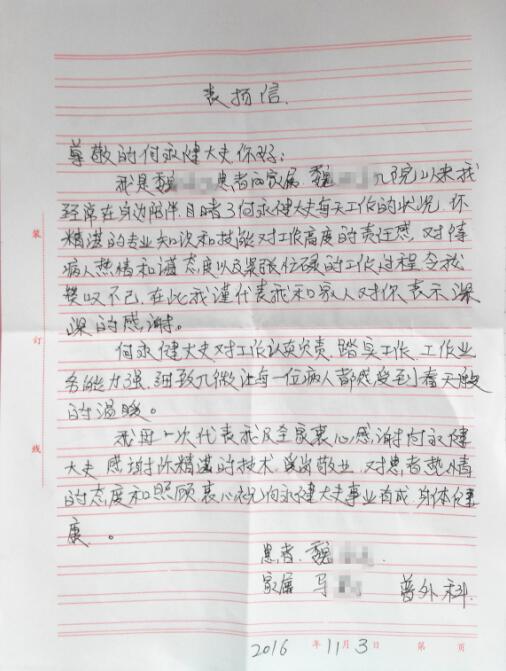 表扬信.
尊敬的何永健大夫你好:
我是魏 患者的家属.魏 入院以来我
经常在身边陪伴.目睹了何永健大夫每天工作的状况.你
精湛的专业知识和技能对工作高度的责任感.对待
病人热情和谐态度以及紧张忙碌的工作过程令我
赞叹不已.在此我谨代表我和家人对你表示深
深的感谢。
何永健大夫对工作认真负责.踏实工作.工作业
务能力强.细致入微让每一位病人都感受到春天般
的温暖。
我再一次代表我及全家衷心感谢何永健
大夫 感谢你精湛的技术.爱岗敬业.对患者热情
的态度和照顾衷心祝何永健大夫事业有成.身体健
康。
患者.魏
家属 马 普外科.
2016年11月3日 第 页
装
订
线